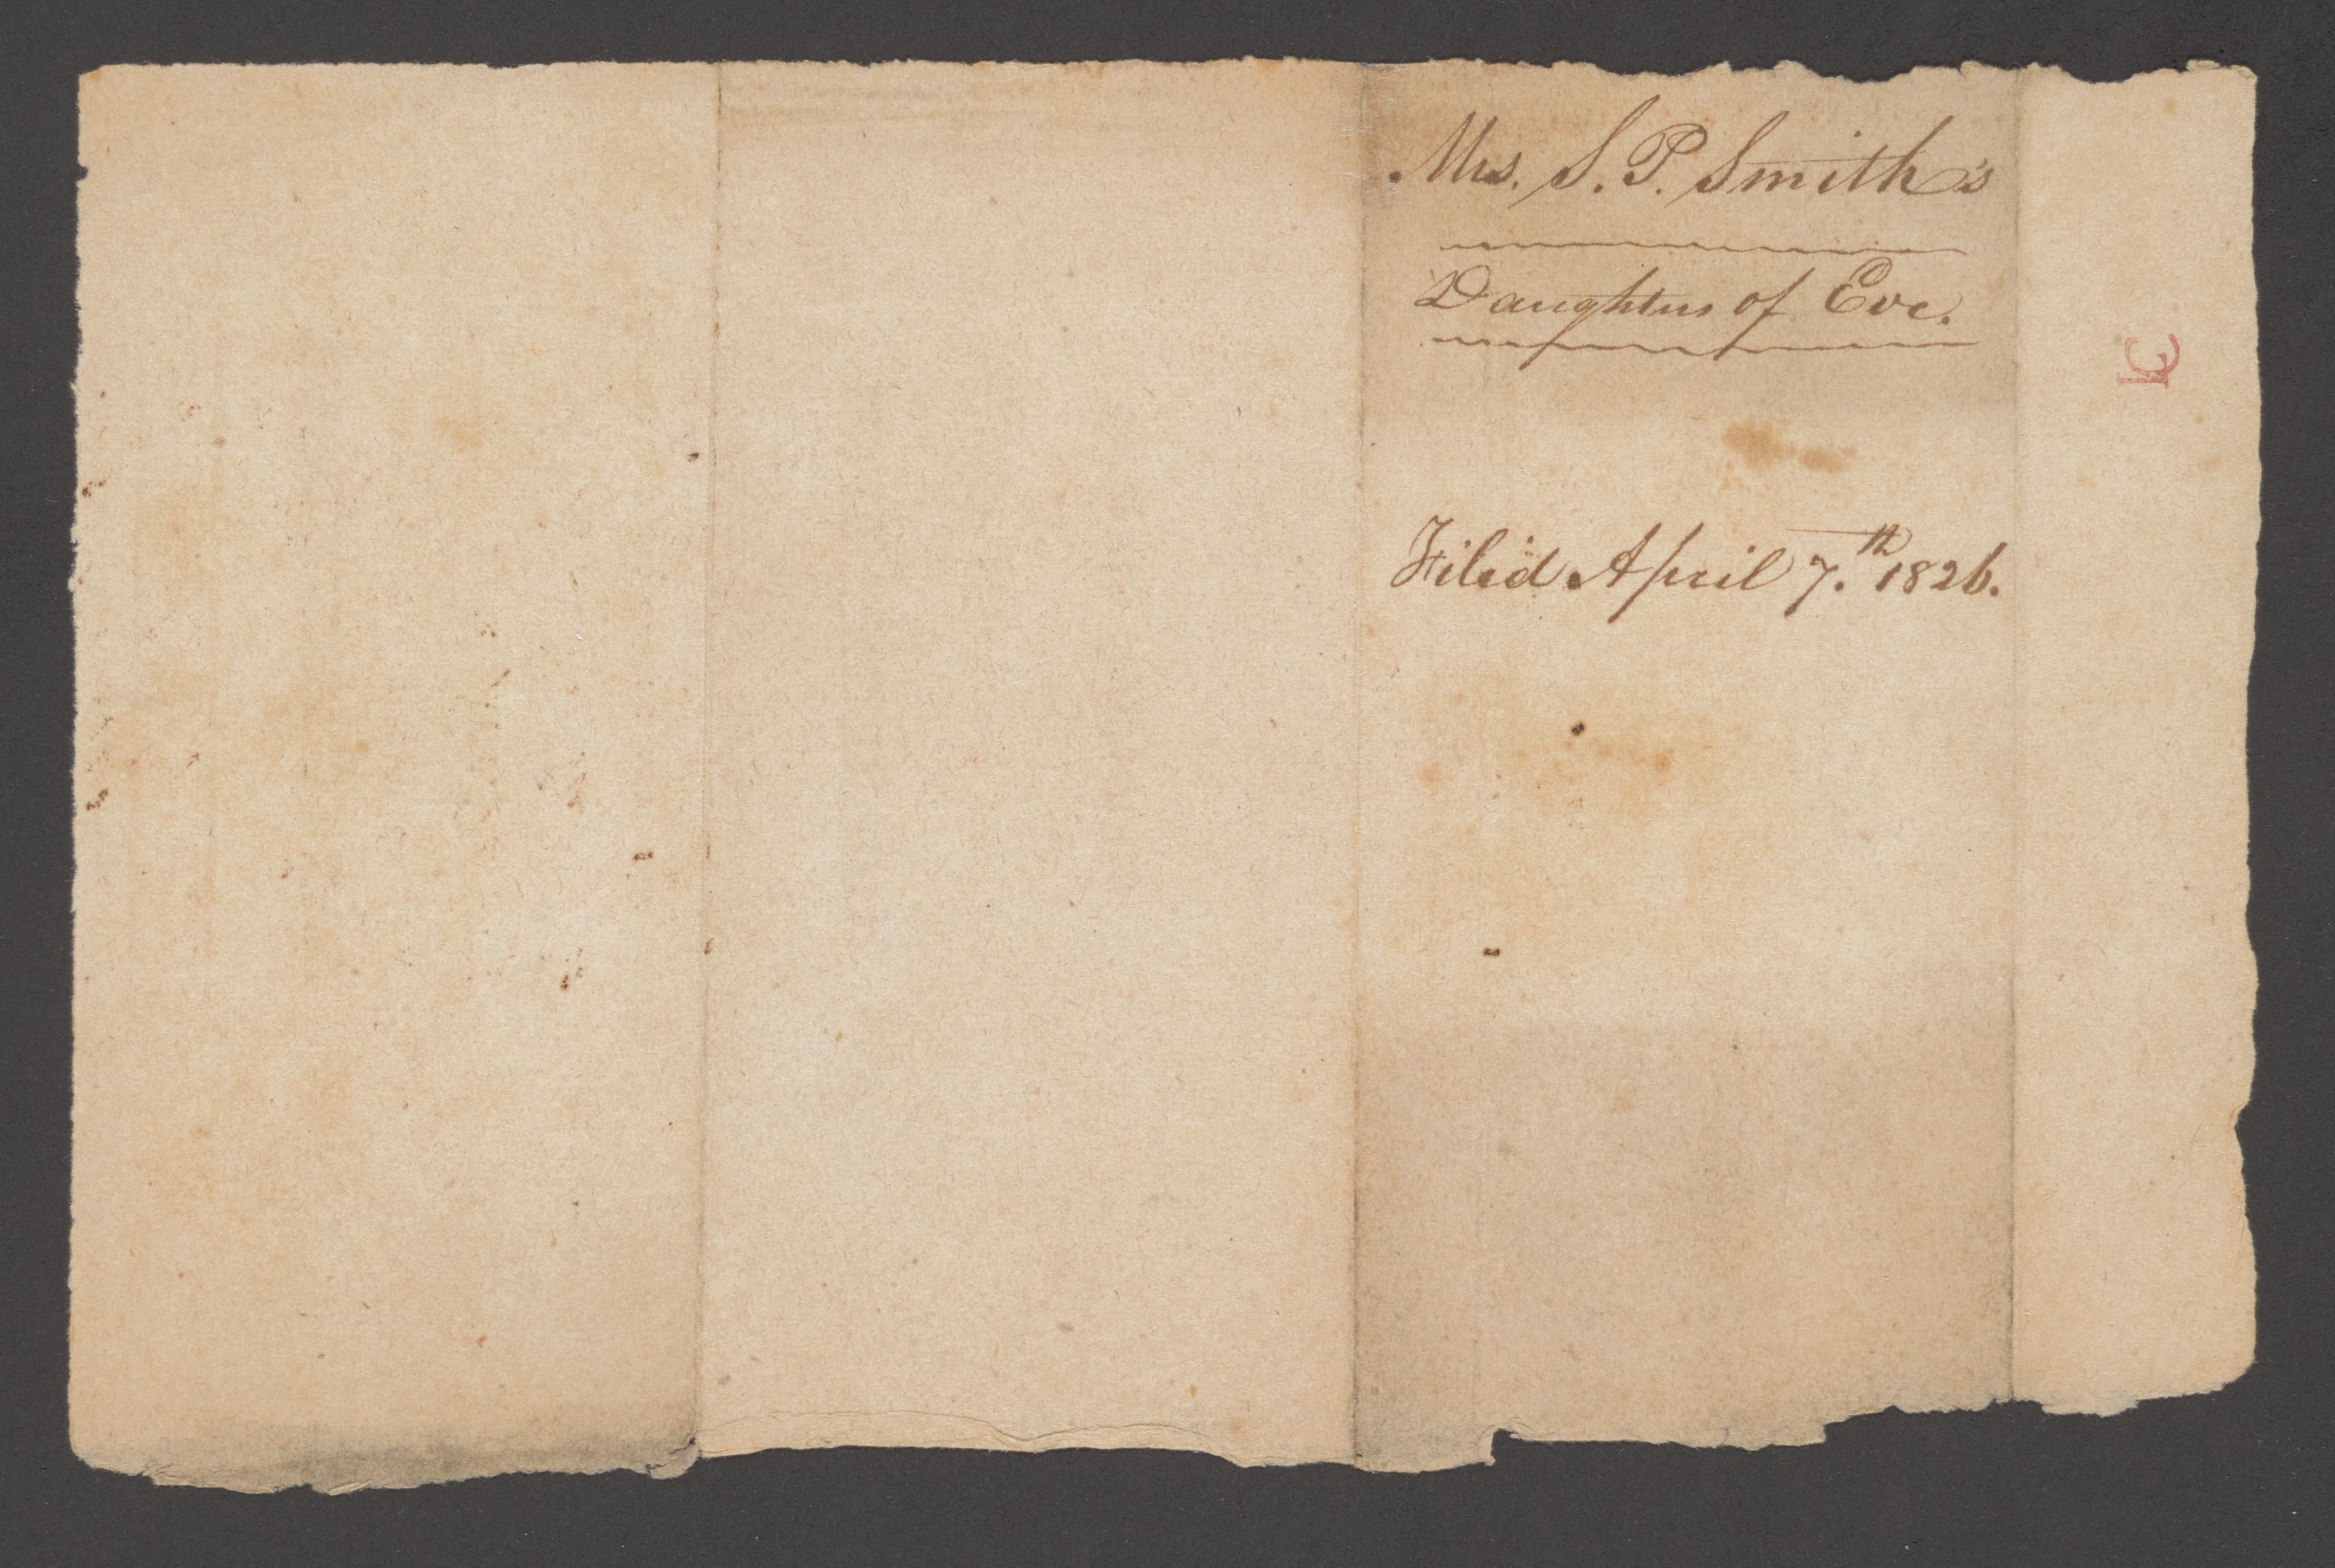 Mrs. S. P. Smith's
Daughters of Eve.
Filed April 7.th 1826.